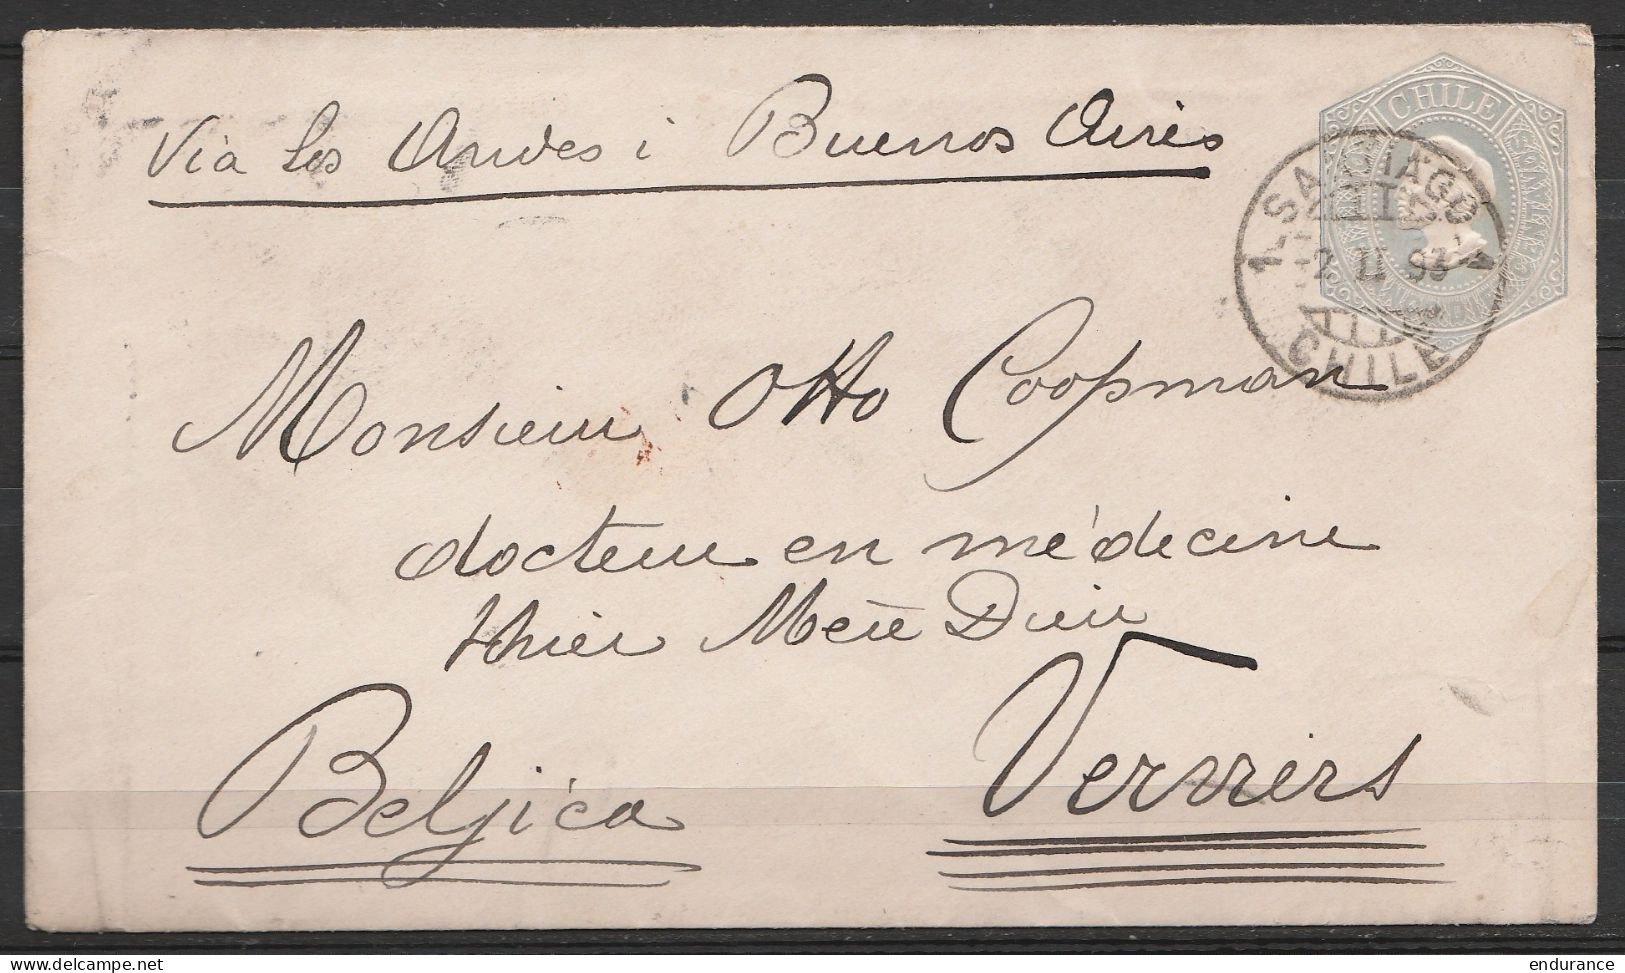 Via los Andes i Buenos Aires
CHILE
1-SANTIAGO
2 II 93
CHILE
Monsieur Otto Coopman
docteur en médecine
thier Mère Dieu
Verviers
Belgica
endurance